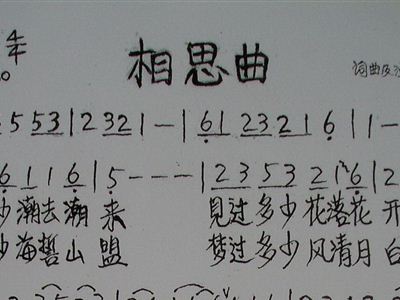 4/4
相思曲
词曲及
5 5 5 3 | 2 3 2 1 - - | 6 1 2 3 2 1 6 | 1 -
6 1 1 6 | 5 - - - | 2 3 5 3 2 1 6 | 2
潮去潮来 見过多少花落花开
海誓山盟 梦过多少风清月白